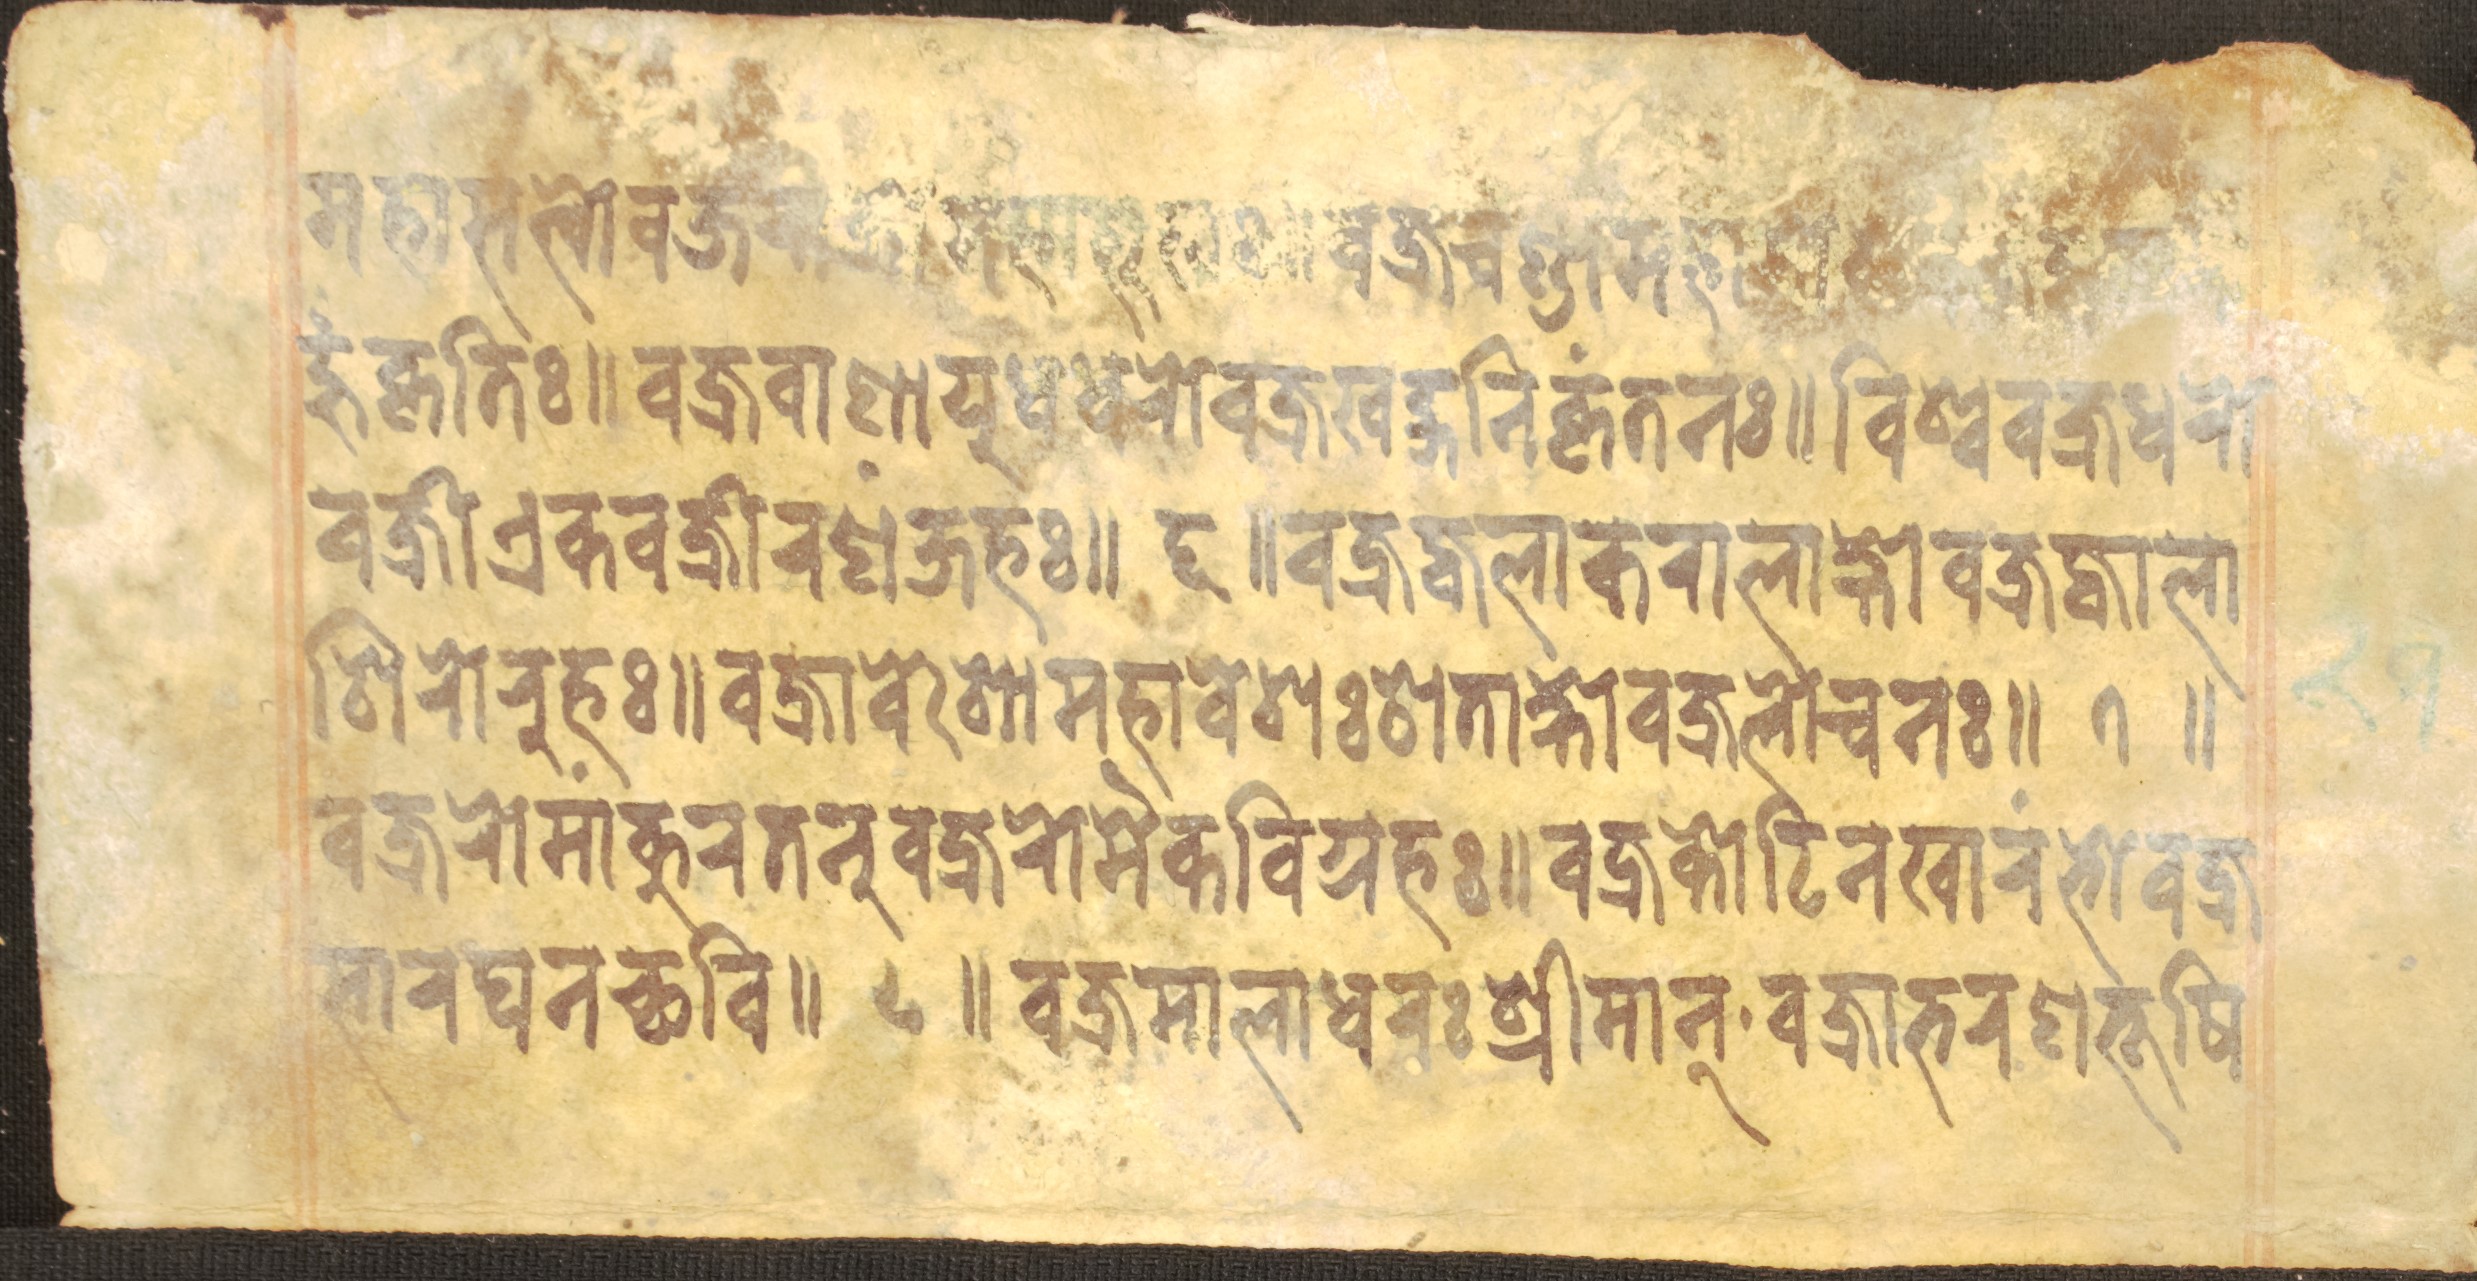 महासत्वोवज्र महासुखः॥वज्रचण्डोमहा
हुंकृतिः॥वज्रवाणायूधधरोवज्रखड्गनिकृंतनः॥विश्ववज्रधरो
वज्रीएकवज्रीरणंजहः॥ ६ ॥वज्रज्वलाकरालाक्षोवज्रज्वाला
शिरोरुहः॥वज्रावेशोमहावेशःशताक्षोवज्रलोचनः॥ ७ ॥
२७
वज्ररोमांकुरतनूवज्ररोमैकविग्रहः॥वज्रकोटिनखारंभोवज्र
सारघनच्छवि॥ ८ ॥वज्रमालाधरःश्रीमान्·वज्राभरणभूषि